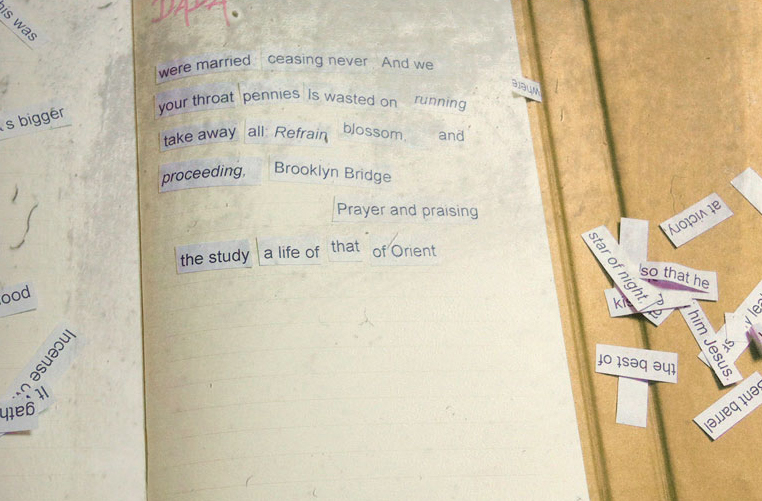 his was
s bigger
ood
Incense
It
gath
DADA.
were married ceasing never And we
your throat pennies Is wasted on running
take away all: Refrain blossom, and
proceeding, Brooklyn Bridge
Prayer and praising
the study a life of that of Orient
where
at victory
star of night,
so that he
him Jesus
the best of
Bent barrel